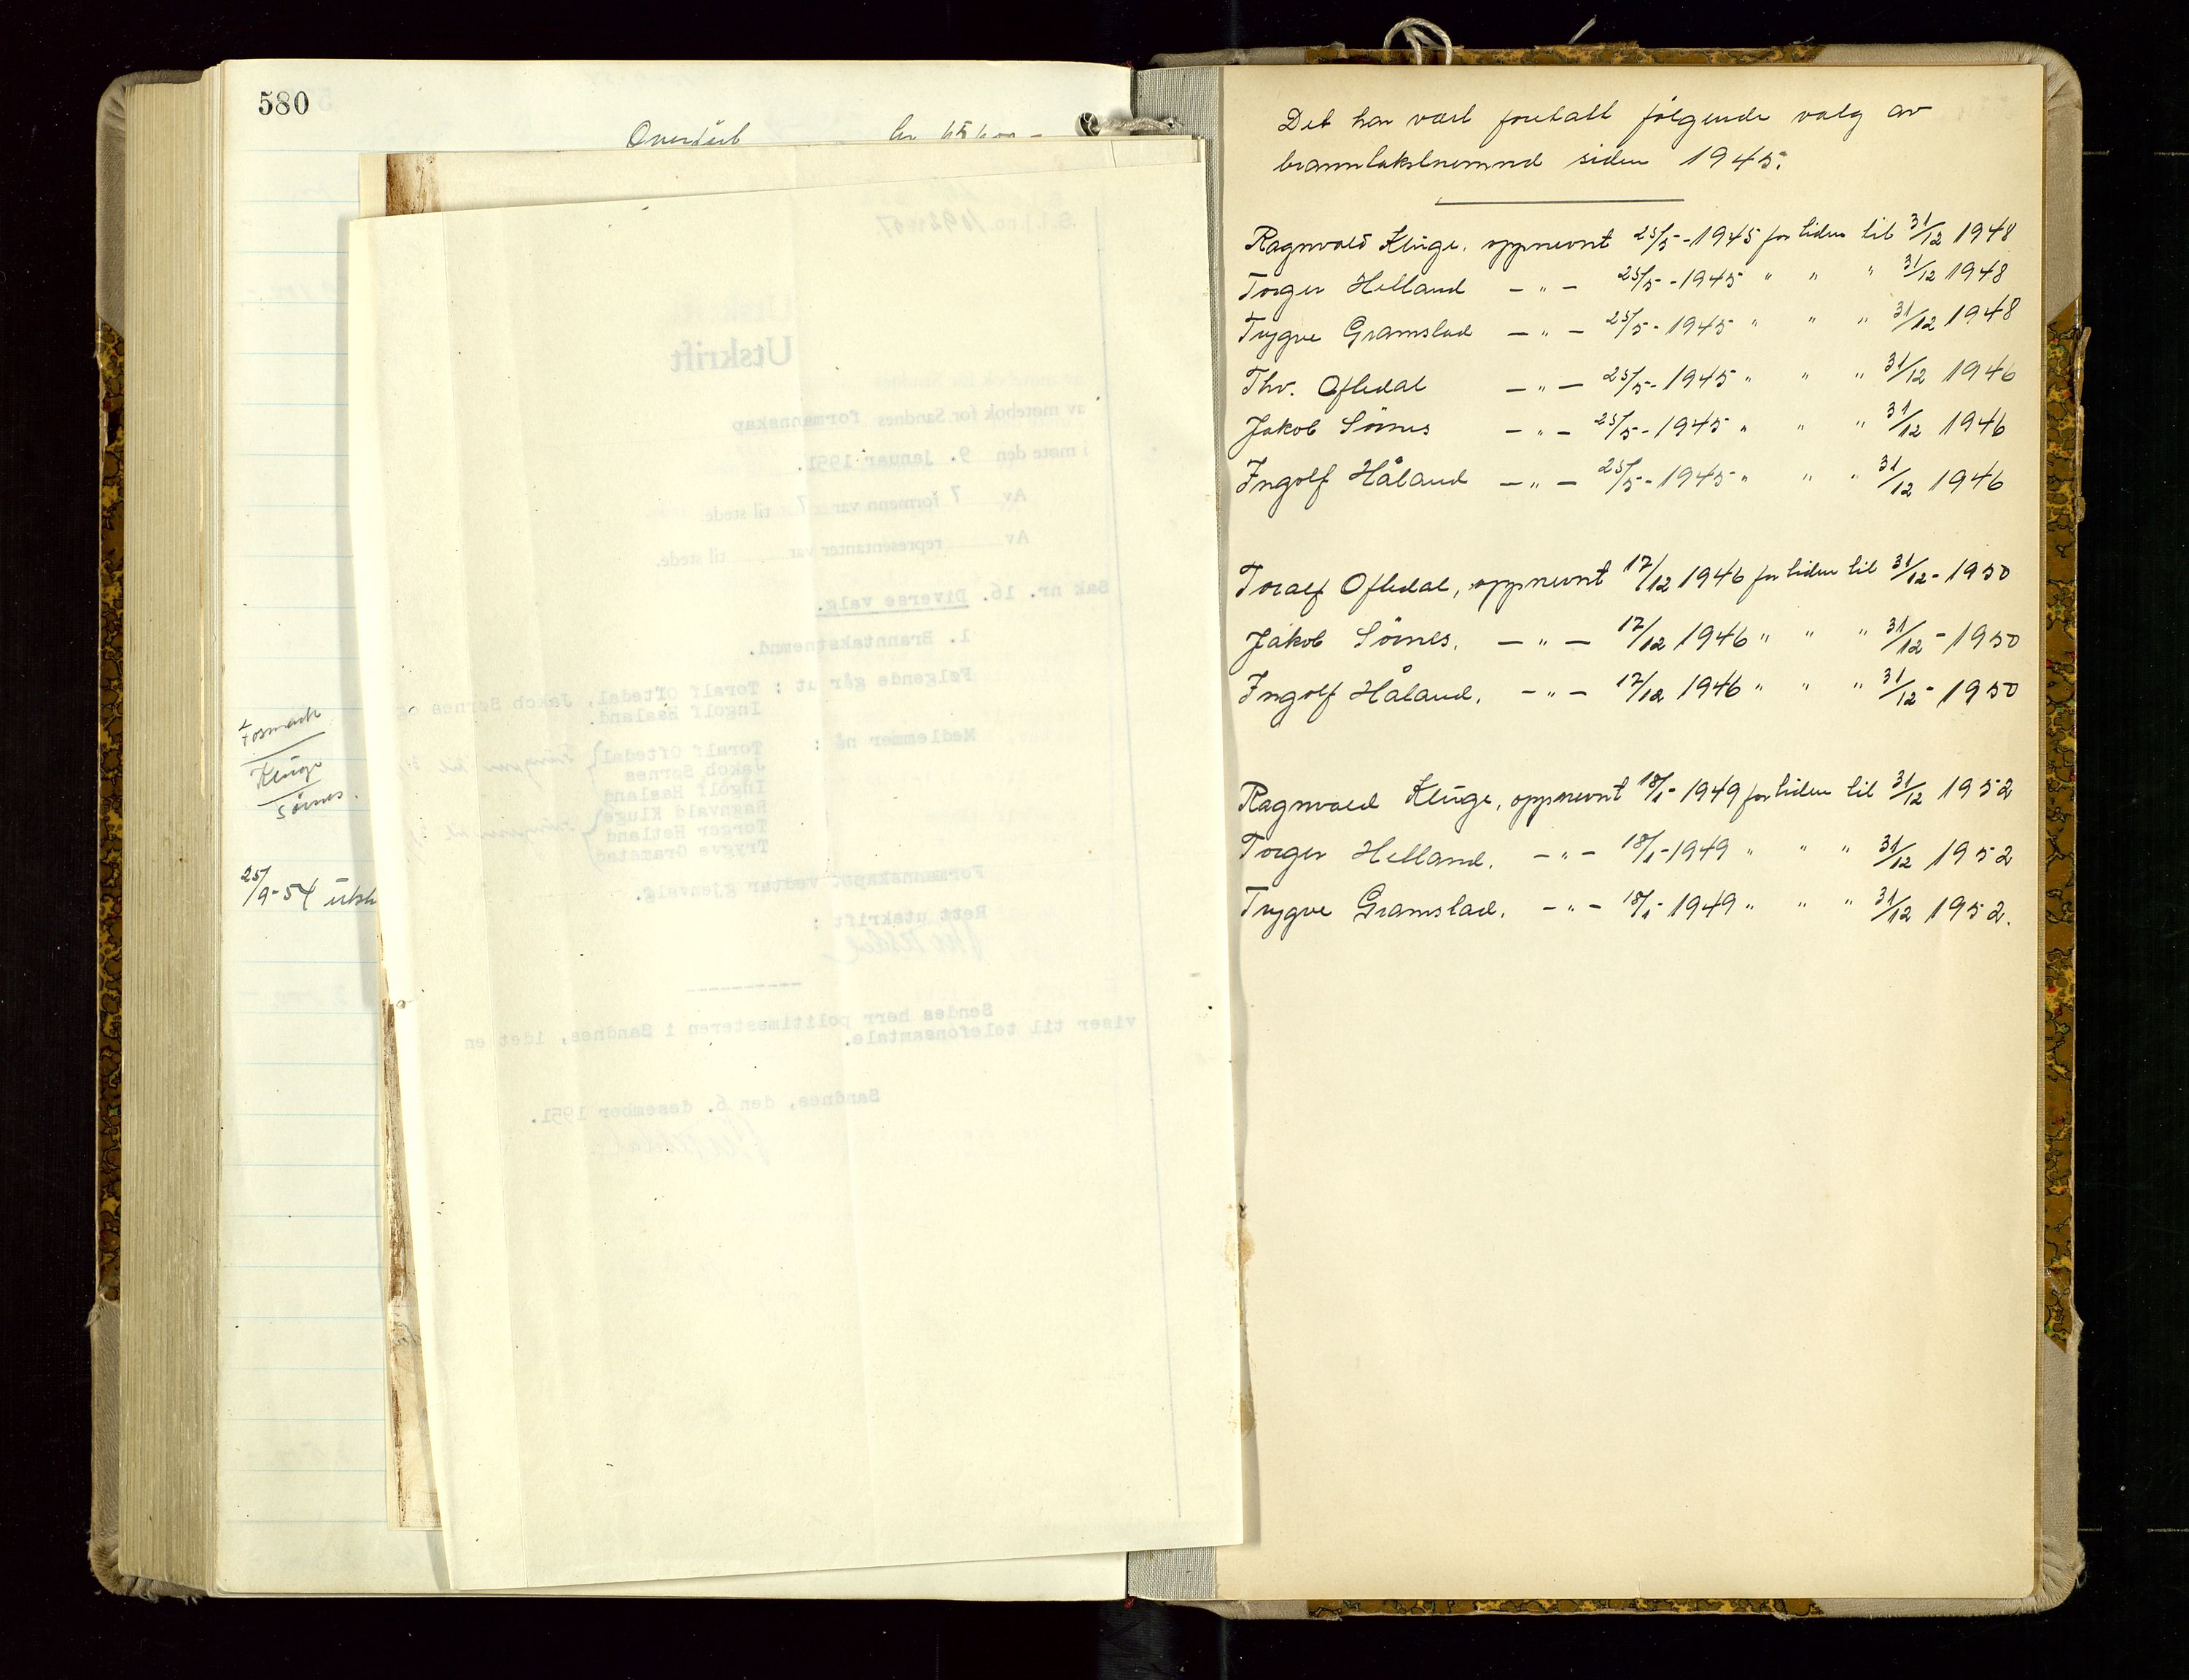 580
Overført
Kluge
Sörnes.
25/9-54 utsk
Utskrift
av møtebok for Sandnes formannskap
i møte den 9. januar 1951.
Av 7 formenn var 7 til stede.
Av representanter var til stede.
Sak nr. 16. Diverse valg.
1. Branntakstnemnd.
Følgende går ut : Toralf Oftedal, Jakob Sørnes og
Ingolf Haaland.
Medlemmer nå : Toralf Oftedal
Jakob Sørnes
Ingolf Haaland
Ragnvald Kluge
Torger Hetland
Trygve Gramstad
Formannskapet vedtar gjenvalg.
Rett utskrift :
Sendes herr politimesteren i Sandnes, idet en
viser til telefonsamtale.
Sandnes, den 6. desember 1951.
Det har vært foretatt følgende valg av
branntakstnemnd siden 1945:
Ragnvald Kluge, oppnevnt 25/5-1945 for tiden til 31/12 1948
Torger Hetland — " — 25/5-1945 " " " 31/12 1948
Trygve Gramstad — " — 25/5-1945 " " " 31/12 1948
Thv. Oftedal — " — 25/5-1945 " " " 31/12 1946
Jakob Sörnes — " — 25/5-1945 " " " 31/12 1946
Ingolf Håland — " — 25/5-1945 " " " 31/12 1946
Toralf Oftedal, oppnevnt 17/12 1946 for tiden til 31/12-1950
Jakob Sörnes, — " — 17/12 1946 " " " 31/12-1950
Ingolf Håland, — " — 17/12 1946 " " " 31/12-1950
Ragnvald Kluge, oppnevnt 18/1-1949 for tiden til 31/12 1952
Torger Hetland, — " — 18/1-1949 " " " 31/12 1952
Trygve Gramstad, — " — 18/1-1949 " " " 31/12 1952.